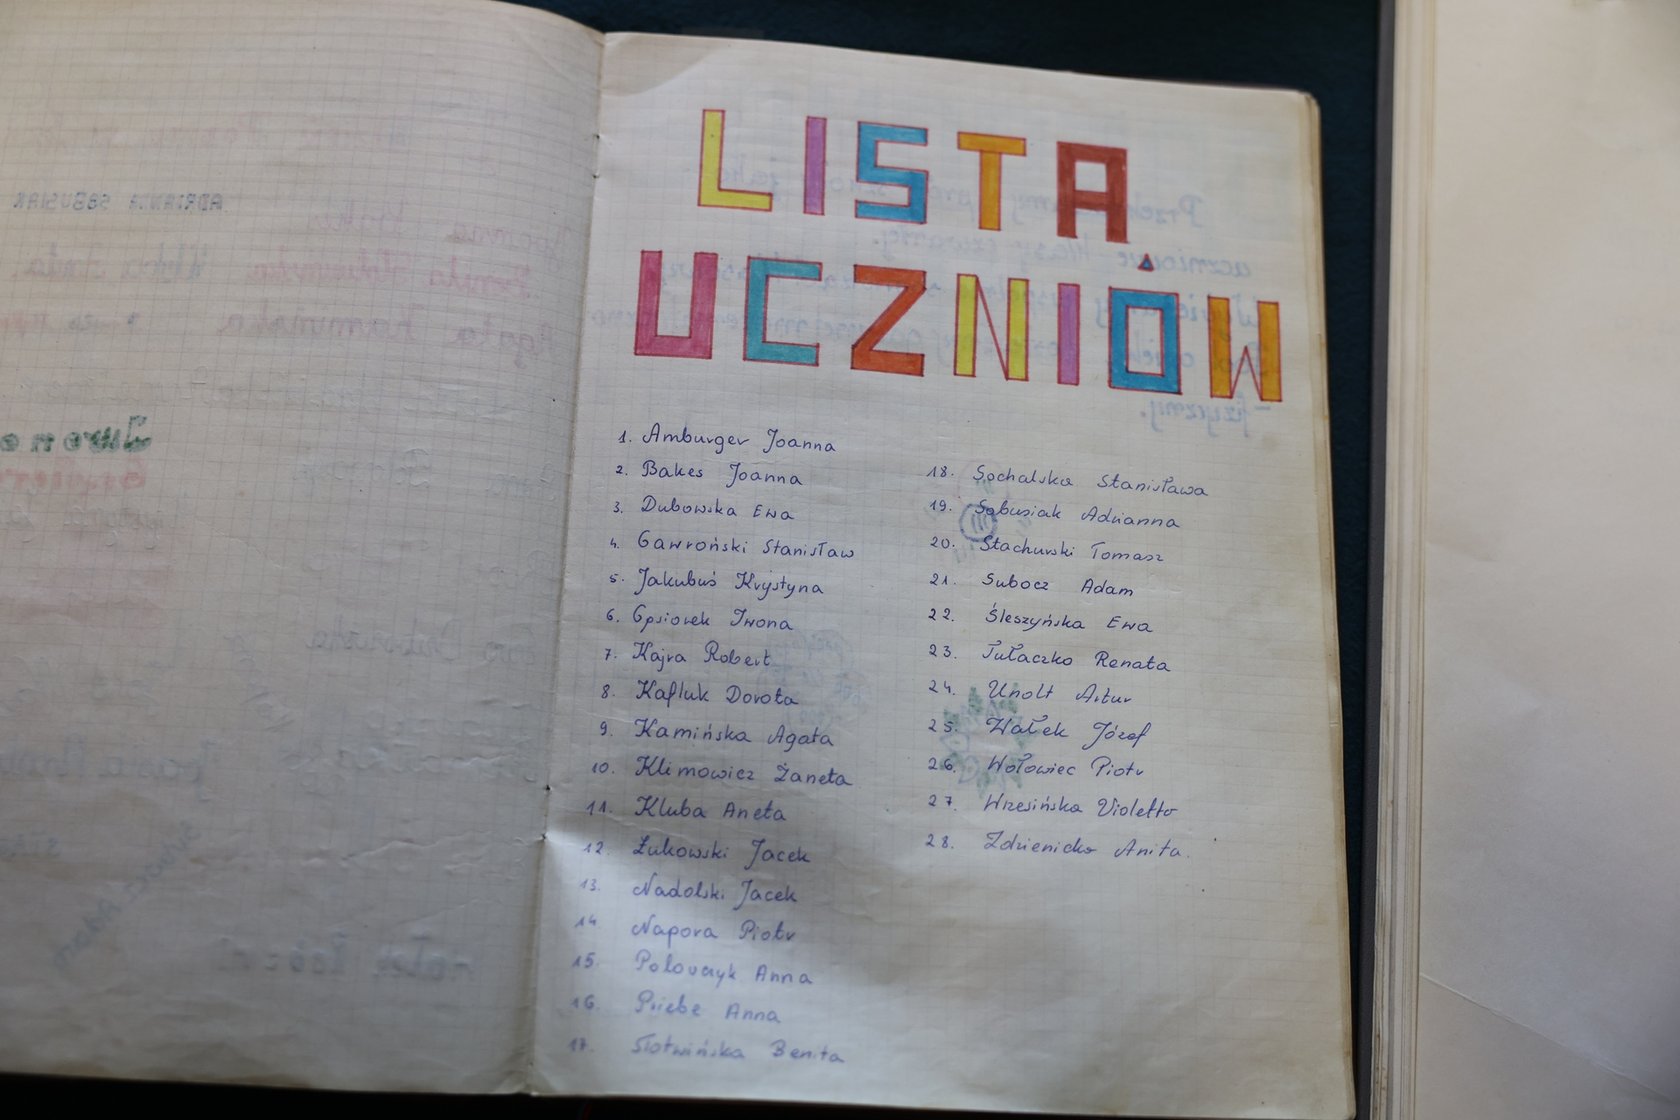 LISTA
UCZNIÓW
1. Amburger Joanna
2. Bakes Joanna
3. Dubowska Ewa
4. Gawroński Stanisław
5. Jakubuś Krystyna
6. Gpsiorek Iwona
7. Kajra Robert
8. Kafluk Dorota
9. Kamińska Agata
10. Klimowicz Żaneta
11. Kluba Aneta
12. Łukowski Jacek
13. Nadolski Jacek
14 Napora Piotr
15. Anna
16. Priebe Anna
17. Słotwińska Benita
18. Sochalska Stanisława
19. Sobusiak Adrianna
20. Stachurski Tomasz
21. Subocz Adam
22. Śleszyńska Ewa
23. Tułaczko Renata
24. Unolt Artur
25. Wałek Józef
26. Wołowiec Piotr
27. Wrzesińska Violetta
28. Zdzienicka Anita.
ADRIANNA SOBUSIAK